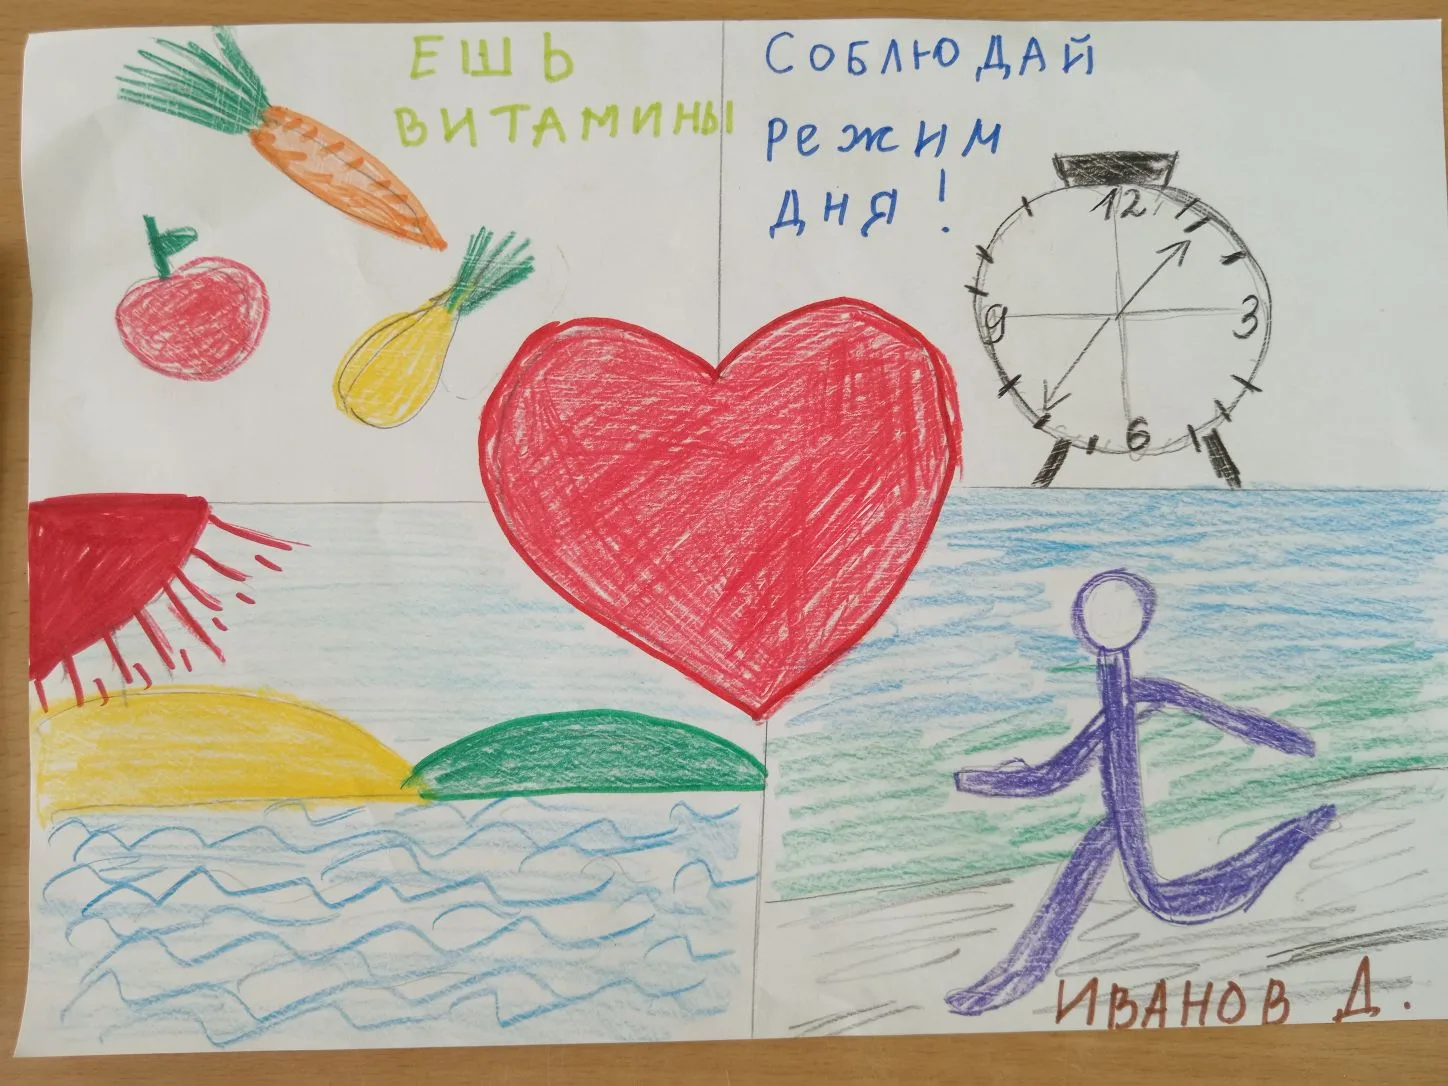 ЕШЬ
ВИТАМИНЫ
СОБЛЮДАЙ
РЕЖИМ
ДНЯ!
12
9 3
6
ИВАНОВ Д.